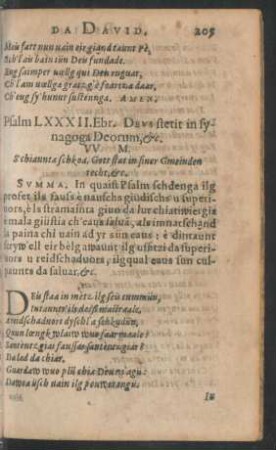 DA DAVID. 205
Meis fart nun uain eir giand taunt Pè,
Sch'l ais bain sün Deis fundade.
Eug saimper uœlg qui Deu auguar,
Ch'l am uœlga gratzg'è fœartza daar,
Ch'eug sy'hunur sustennga. AMEN.
Psalm LXXXII. Ebr. Deus stetit in sy-
nagoga Deorum, &c.
VV. M.
S'chiannta schkœa, Gott stat in siner Gmeinden
recht, &c.
SVMMA. In quaist Psalm schdenga ilg
profet ils fauss è nauscha giudischs u superi-
uors, è ls stramaintà giuu da lur chiatiuiergia
è mala giüstia ch'eaus faisa, als imnatschand
la paina chi uain ad yr sun eaus; è dintaunt
scryw'ell eir bêlg'awaunt ilg uffizi da superi-
uors u reidschaduors, ilg qual eaus sun cul-
paunts da saluar. &c.
DEis staa in metz ilg seis cummün,
intaunter ils deis maiestraale,
Arridschaduors dysch'l a schkadün,
Quun lœngk wlaiw wuo faar maale?
Sentenzgias fausas santenzgiar?
Da lad da chiar,
Guardaw wuo plü chia Deu m'agis:
Dawœusch nain ilg pouwetaungs.
Iu